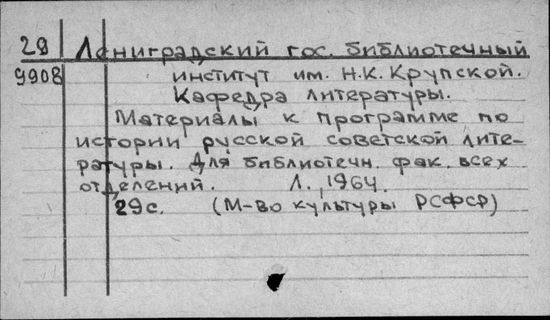 28 Ленинградский гос. библиотечный
9908 институт им. Н.К. Крупской.
Кафедра литературы.
Материалы к программе по
истории русской советской лите-
ратуры. Для библиотечн. фак. всех
отделений. Л., 1964.
29с. (М-во культуры РСФСР)